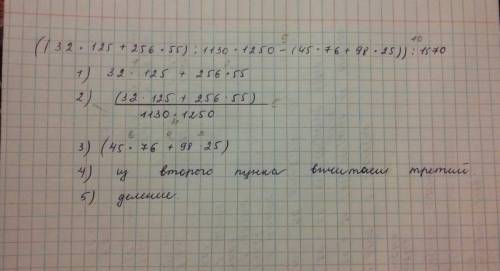 ((32·125+256·55):1130·1250-(45·76+98·25)):1570
1) 32·125+256·55
2) (32·125+256·55)
1130·1250
3) (45·76+98·25)
4) из второго пунка вычитаем третий
5) деление